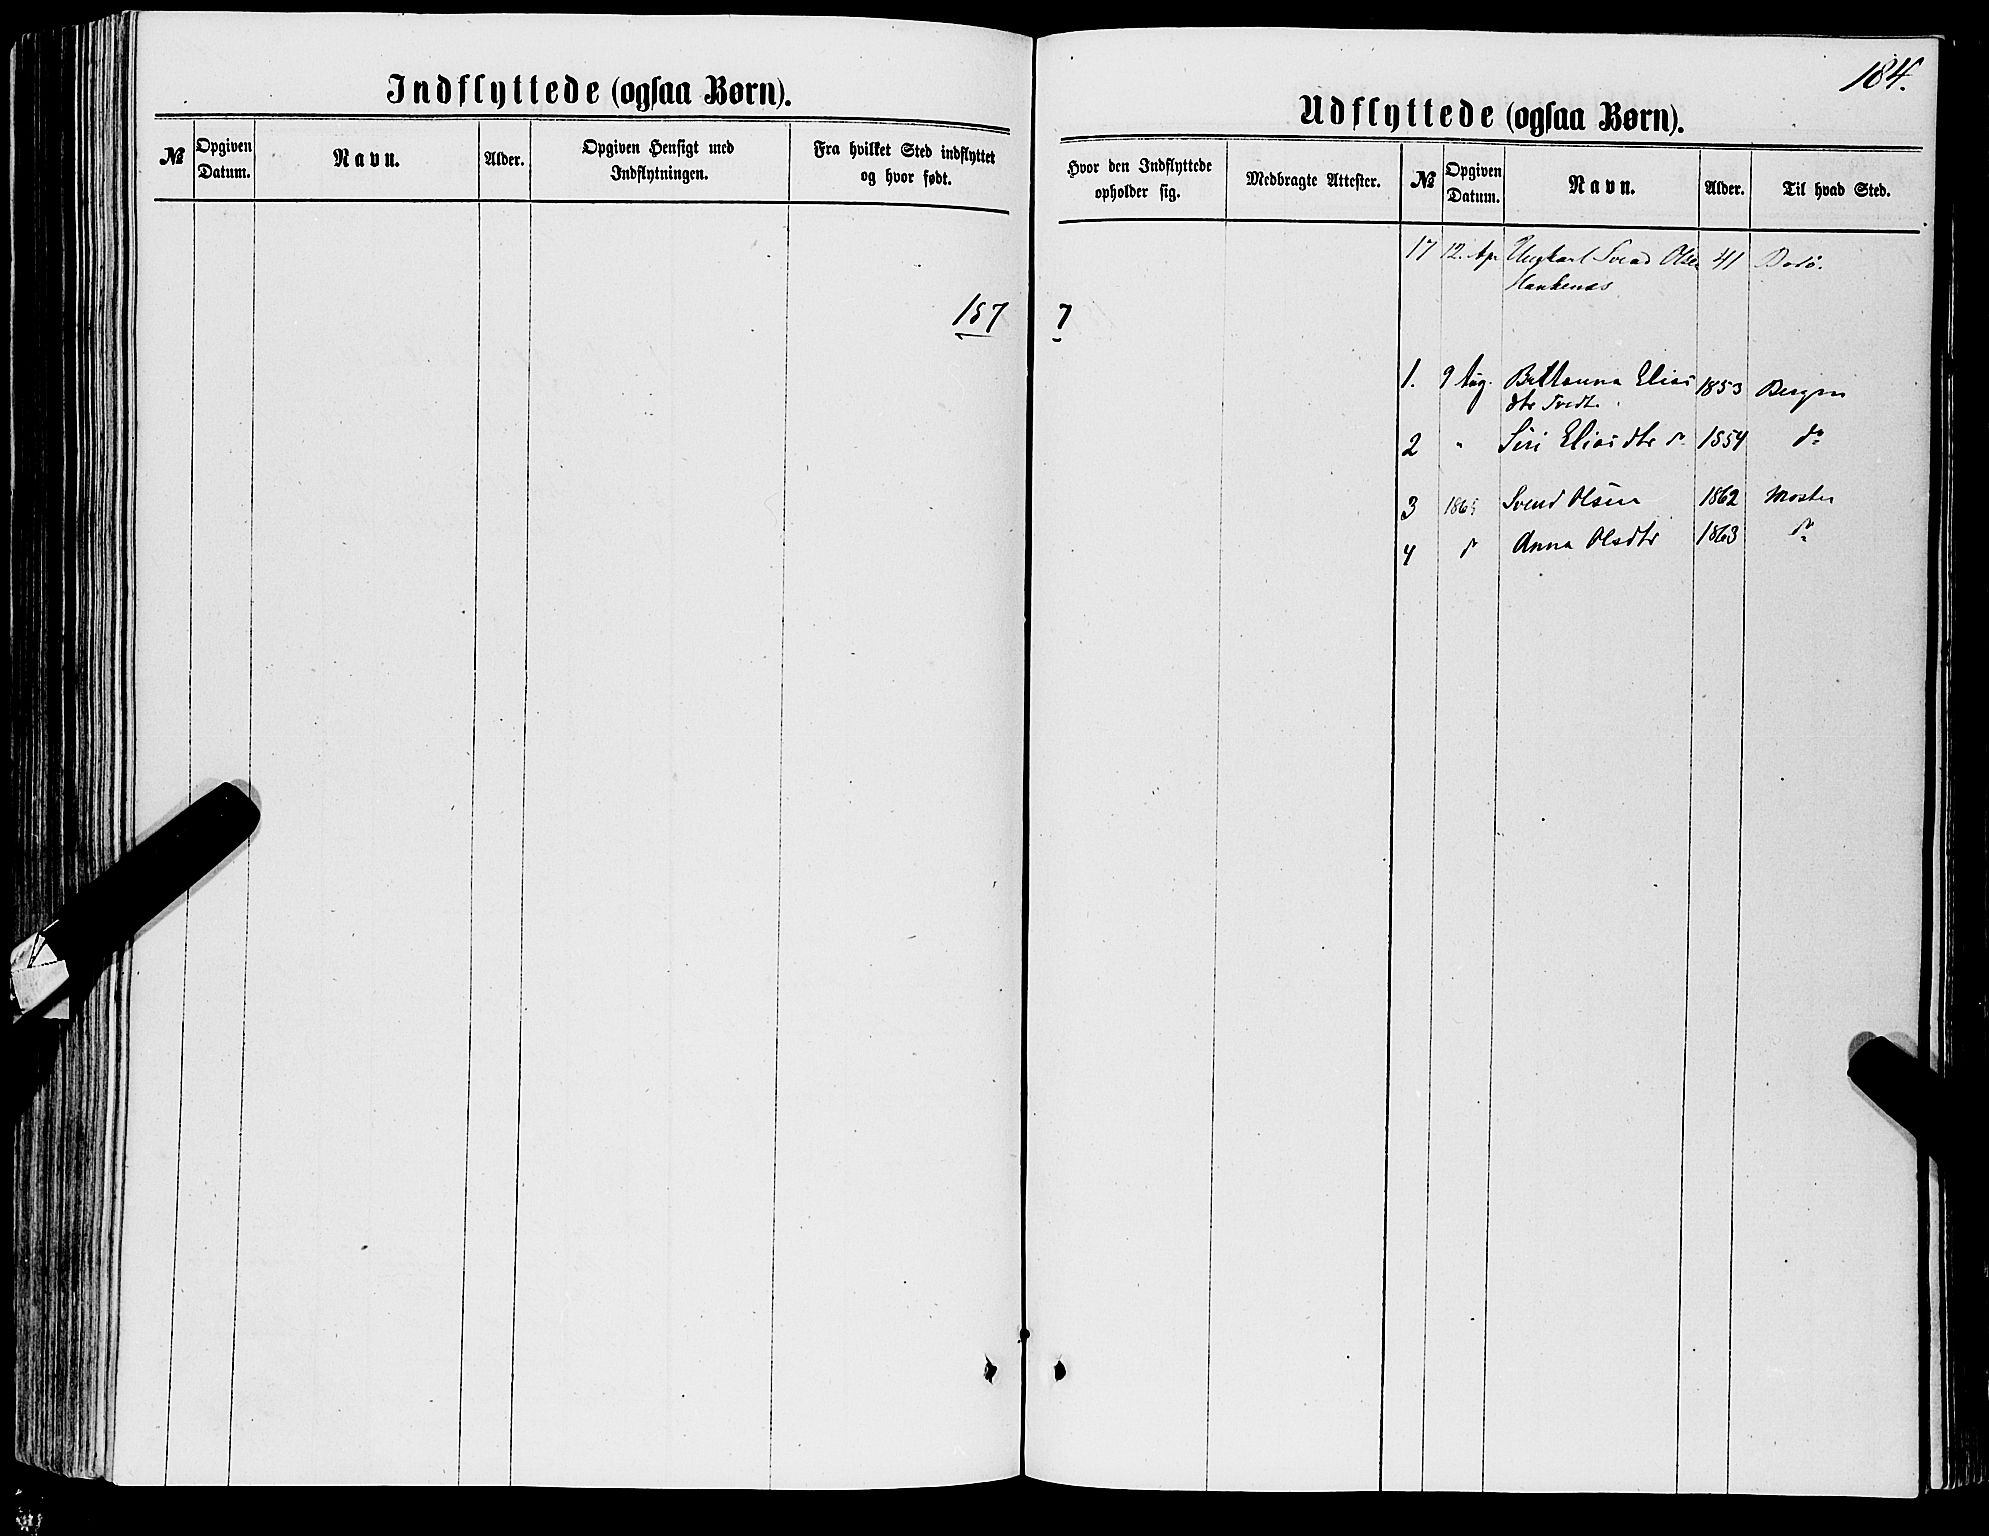 Indflyttede (ogsaa Børn).
№ Opgiven Datum. Navn. Alder. Opgiven Hensigt med Indflytningen. Fra hvilket Sted indflyttet og hvor født.
187
184.
Udflyttede (ogsaa Børn).
Hvor den Indflyttede opholder sig. Medbragte Attester. № Opgiven Datum. Navn. Alder. Til hvad Sted.
17 12. Ap Ungkarl Svend Olsen 41 Bodö.
7
1. 9 Aug. Elias 1853 Bergen
dtr Tvedt.
2 " Siri Eliasdtr do 1854 do
3 Svend Olsen 1862 Moster
4 do Anna Olsdtr 1863 do